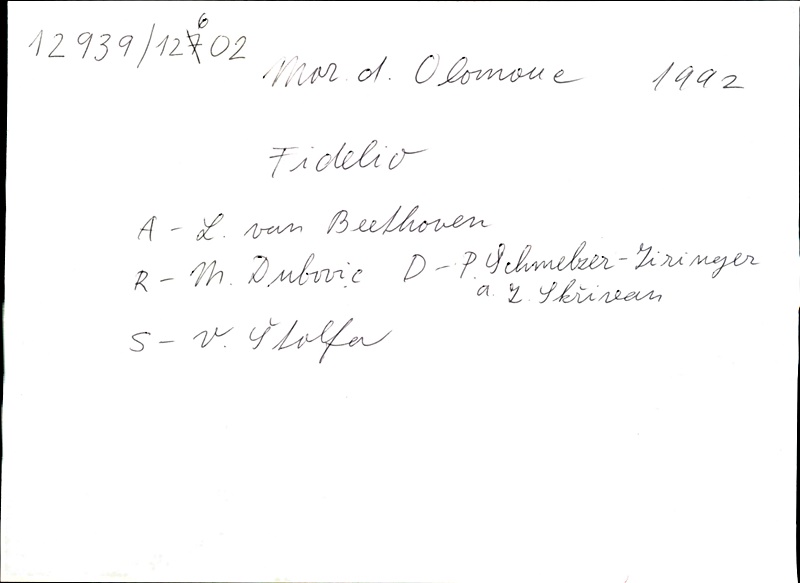 12 939/12602
Mor. d. Olomouc 1992
Fidelio
A - L. van Beethoven
R - M. Dubovic D - P. Schmelzer-Ziringer
a Z. Skřivan
S - V. Štolfa